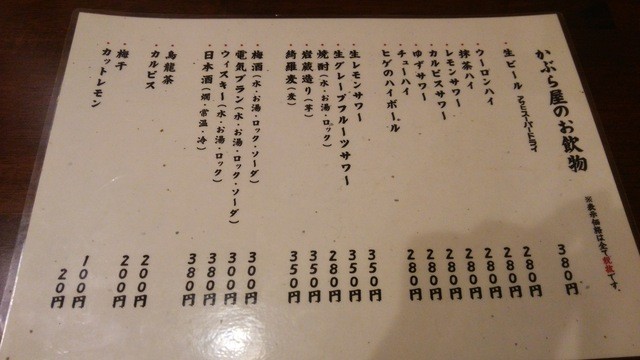 ※表示価格は全て税抜です。
かぶら屋のお飲物
・生ビール アサヒスーパードライ 380円
・ウーロンハイ 280円
・抹茶ハイ 280円
・レモンサワー 280円
・カルピスサワー 280円
・ゆずサワー 280円
・チューハイ 280円
・ヒゲのハイボール 280円
・生レモンサワー 350円
・生グレープフルーツサワー 350円
・焼酎(水・お湯・ロック) 280円
・岩蔵造り(芋) 350円
・綺羅麦(麦) 350円
・梅酒(水・お湯・ロック・ソーダ) 300円
・電気ブラン(水・お湯・ロック・ソーダ) 300円
・ウィスキー(水・お湯・ロック) 380円
・日本酒(燗・常温・冷) 380円
・烏龍茶 200円
・カルピス 200円
・梅干 100円
・カットレモン 20円